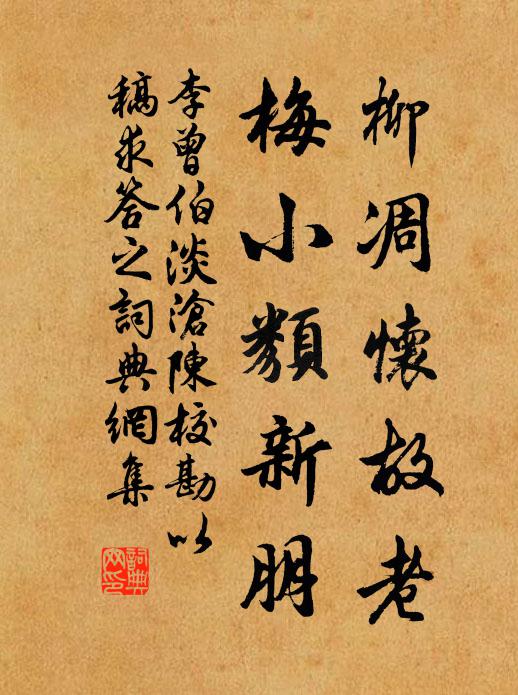 柳凋懷故老
梅小類新朋
李曾伯淡滄陳校勘以
稿求答之詞典網集
詞典
網印